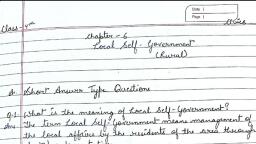 Date
Page
Class - 4th
Chapter - 6
Local Self - Government
(Rural)
A. Short Answer Type Questions
Q.1 What is the meaning of Local Self-Government?
Ans The term Local Self-Government means management of
the local affairs by the residents of the area through